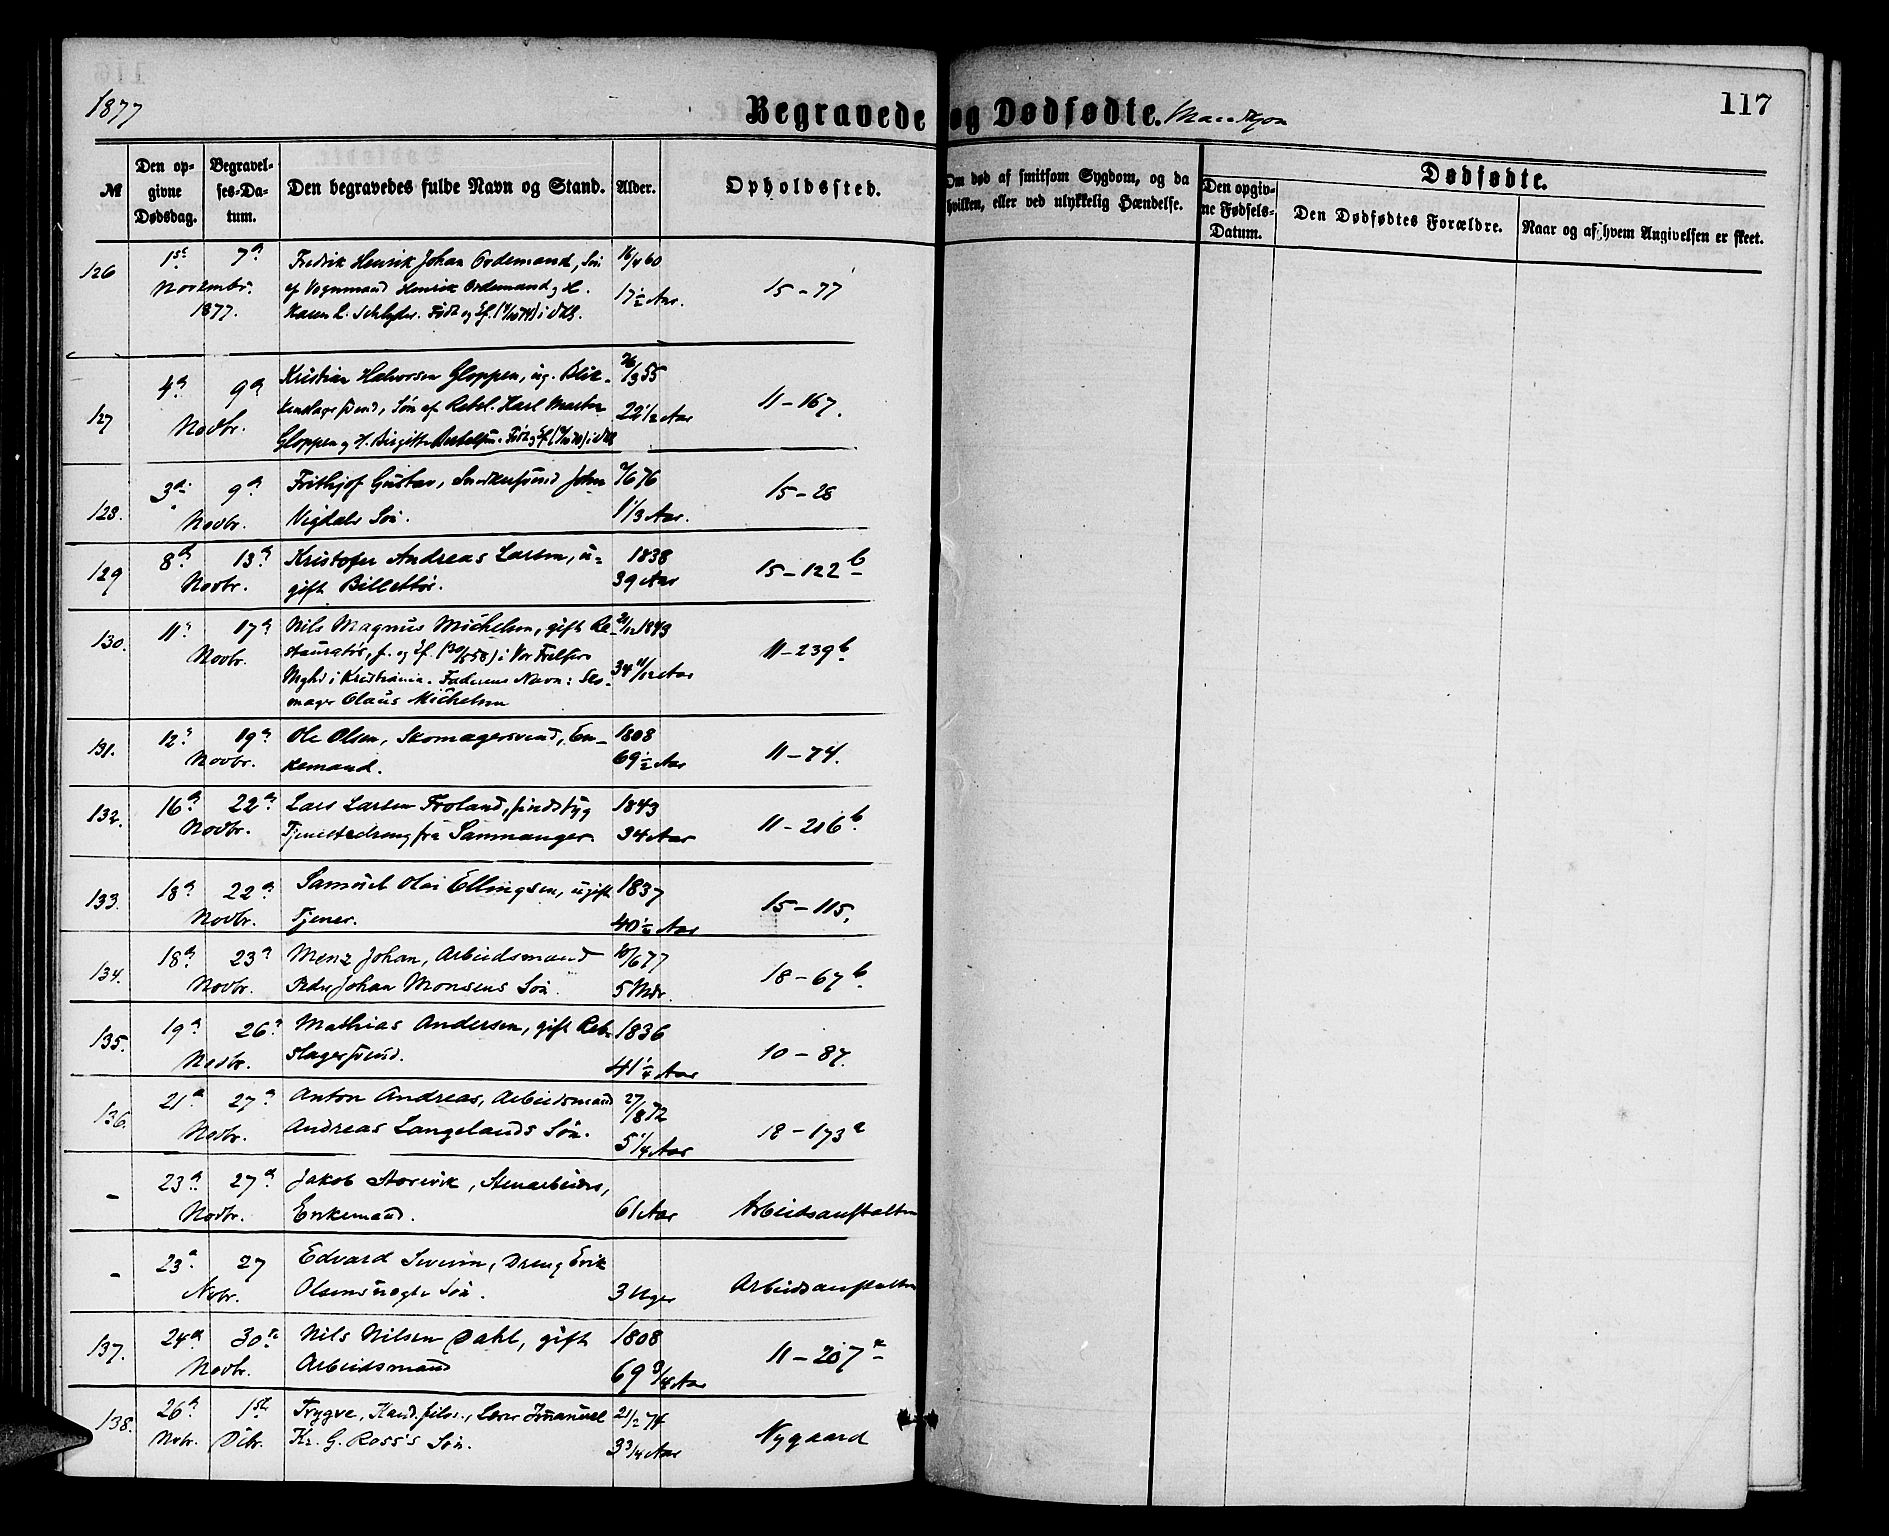 1877
Begravede og Dødfødte. Mandkjøn
117
№
Den opgivne Dødsdag.
Begravelses-Datum.
Den begravedes fulde Navn og Stand.
Alder.
Opholdssted.
Om død af smitsom Sygdom, og da
hvilken, eller ved ulykkelig Hændelse.
Dødfødte.
Den opgivne Fødsels-Datum.
Den Dødfødtes Forældre.
Naar og af hvem Angivelsen er skeet.
126 1ste 7de Fredrik Henrik Johan Ordemand, Søn 16/4 60
Novembr. af Vognmand Henrik Ordemand og H. 17½ Aar. 15-77
1877. Karen L.
127 4de 9de Kristian Halvorsen Gloppen, ug. Blik- 26/3 55
Novbr. kenslagersvend, Søn af Rebsl. Karl Martin 22½ Aar 11-167.
Gloppen og H. Birgitte
128. 3die 9de Frithjof Gustav, Snedkersvend John 76 15-28
Novbr. Vigdals Søn. 1 1/3 Aar.
129 8de 13de Kristofer Andreas Larsen, u- 1838 15-122 b
Novbr. gift Billettør. 39 Aar
130. 11te 17de Nils Magnus Michelsen, gift Re- 21/12 1843
Novbr. stauratør, f. og i Vor Frelsers 11-239 b.
Mghd i Kristiania. Faderens Navn: Sko- 34 11/12 Aar
mager Olaus Michelsen
131. 12te 19de Ole Olsen, Skomagersvend, En- 1808
Novbr. kemand. 69½ Aar 11-74.
132. 16de 22de Lars Larsen Froland, sindssyg 1843
Novbr. Tjenestedreng fra Sammanger. 34 Aar 11-216 b.
133. 18de 22de Samuel Olai Ellingsen, ugift 1837
Novbr. Tjener. 40½ Aar 15-115.
134. 18de 23de Menz Johan, Arbeidsmand 10/6 77
Novbr. Peder Johan Monsens Søn. 5 Mdr. 18-67 b.
135. 19de 26de Mathias Andersen, gift Reb- 1836
Novbr. slagersvend. 41¼ Aar 10-87.
136. 21de 27de Anton Andreas, Arbeidsmand 27/8 72
Novbr. Andreas Langelands Søn. 5¼ Aar 18-173 a
- 23de 27de Jakob Storevik, Stenarbeider,
Novbr. Enkemand. 61 Aar Arbeidsanstalten
- 23de 27 Edvard Severin, Dreng Erik
Novbr. Olsens uægte Søn. 3 Uger Arbeidsanstalten
137. 24de 30te Nils Nilsen Dahl, gift 1808
Novbr. Arbeidsmand 69¾ Aar 11-207 a
138. 26de 1ste Trygve, Kand. filos., Lærer Imanuel 21/2 74
Nvbr. Dcbr. Kr. G. Ross's Søn. 3¾ Aar Nygaard